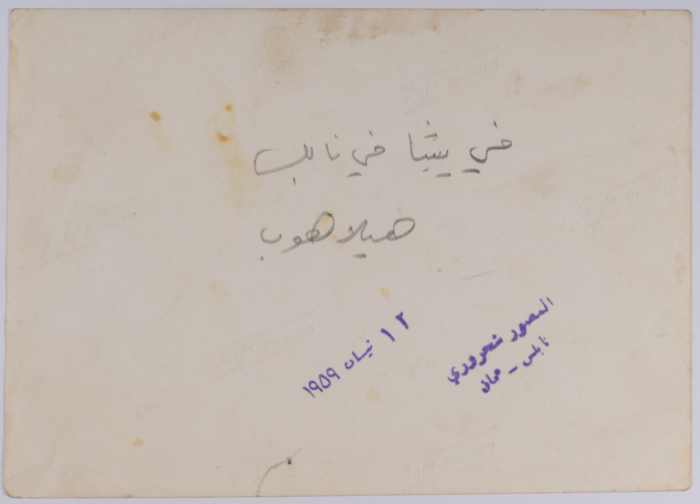 في بيتنا في نابلس
هيلا هوب
١٢ نيسان ١٩٥٩
المصور شحروري
نابلس - عمان